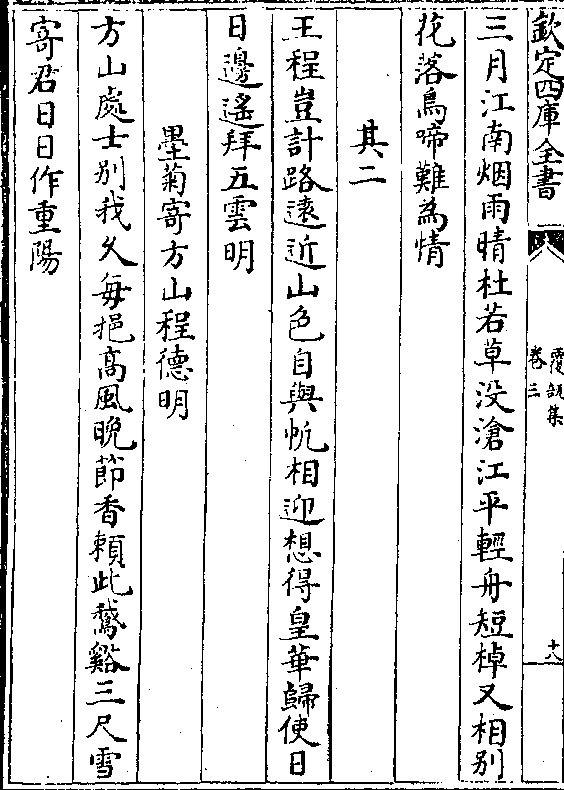 欽定四庫全書
覆瓿集
卷三
十八
三月江南烟雨晴杜若草没滄江平輕舟短棹又相别
花落鳥啼難為情
其二
王程豈計路遠近山色自與帆相迎想得皇華歸使日
日邊遥拜五雲明
墨菊寄方山程德明
方山處士别我久每挹高風晚節香頼此鵞谿三尺雪
寄君日日作重陽